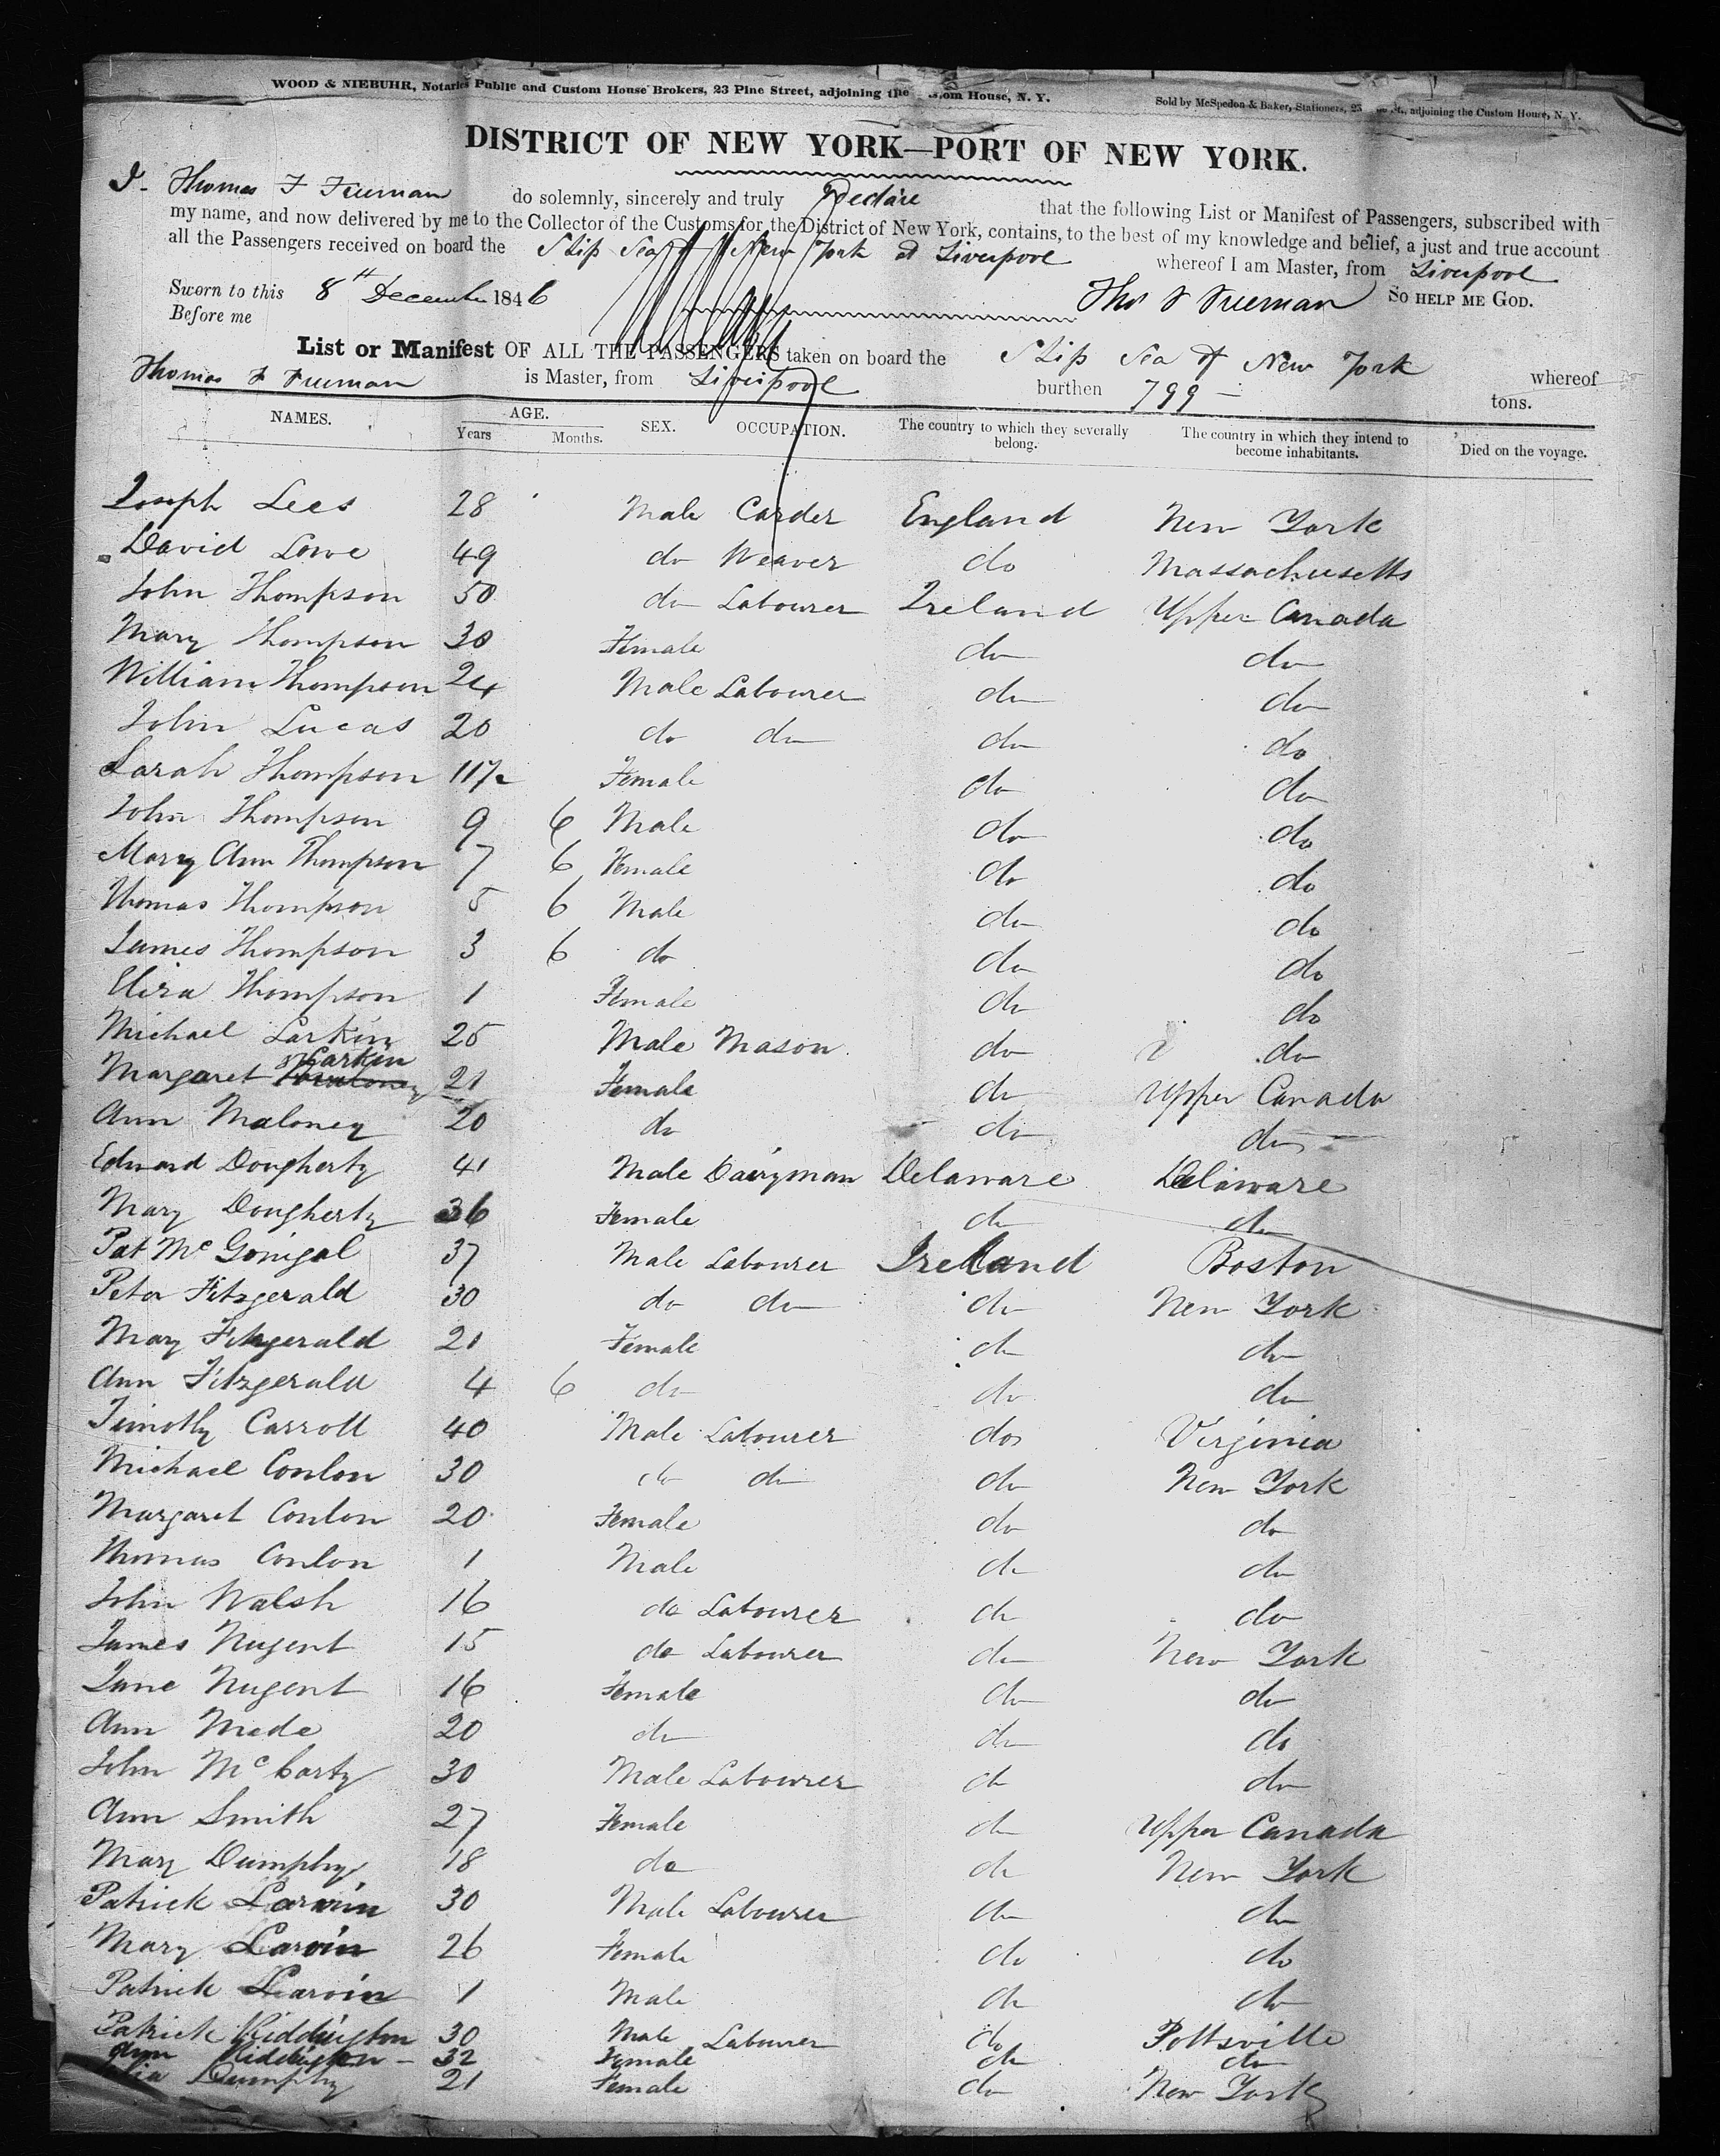 WOOD & NIEBUHR, Notaries Public and Custom House Brokers, 23 Pine Street, adjoining the Custom House, N. Y.
Sold by McSpedon & Baker, Stationers, 25 St., adjoining the Custom House, N. Y.
DISTRICT OF NEW YORK—PORT OF NEW YORK.
I- Thomas F Freeman do solemnly, sincerely and truly Declare that the following List or Manifest of Passengers, subscribed with
my name, and now delivered by me to the Collector of the Customs for the District of New York, contains, to the best of my knowledge and belief, a just and true account
all the Passengers received on board the Ship Sea of New York at Liverpool whereof I am Master, from Liverpool
Sworn to this 8th December 1846 Thos F Freeman SO HELP ME GOD.
Before me
List or Manifest OF ALL THE PASSENGERS taken on board the Ship Sea of New York whereof
Thomas F Freeman is Master, from Liverpool burthen 799 - tons.
NAMES. AGE. Years Months. SEX. OCCUPATION. The country to which they severally belong. The country in which they intend to become inhabitants. Died on the voyage.
Joseph Lees 28 Male Carder England New York
David Lowe 49 do Weaver do Massachusetts
John Thompson 50 do Labourer Ireland Upper Canada
Mary Thompson 30 Female do do
William Thompson 24 Male Labourer do do
John Lucas 20 do do do do
Sarah Thompson 11 1/2 Female do do
John Thompson 9 6 Male do do
Mary Ann Thompson 7 6 Female do do
Thomas Thompson 5 6 Male do do
James Thompson 3 6 do do do
Eliza Thompson 1 Female do do
Michael Larkin 25 Male Mason do do
Margaret Larkin 21 Female do Upper Canada
Ann Maloney 20 do do do
Edward Dougherty 41 Male Dairyman Delaware Delaware
Mary Dougherty 36 Female do do
Pat McGonigal 37 Male Labourer Ireland Boston
Peter Fitzgerald 30 do do do New York
Mary Fitzgerald 21 Female do do
Ann Fitzgerald 4 6 do do do
Timothy Carroll 40 Male Labourer do Virginia
Michael Conlon 30 do do do New York
Margaret Conlon 20 Female do do
Thomas Conlon 1 Male do do
John Walsh 16 do Labourer do do
James Nugent 15 do Labourer do New York
Jane Nugent 16 Female do do
Ann Mede 20 do do do
John McCarty 30 Male Labourer do do
Ann Smith 27 Female do Upper Canada
Mary Dumphy 18 do do New York
Patrick Larvin 30 Male Labourer do do
Mary Larvin 26 Female do do
Patrick Larvin 1 Male do do
Patrick Kiddington 30 Male Labourer do Pottsville
Ann Kiddington - 32 Female do do
Dumphy 21 Female do New York